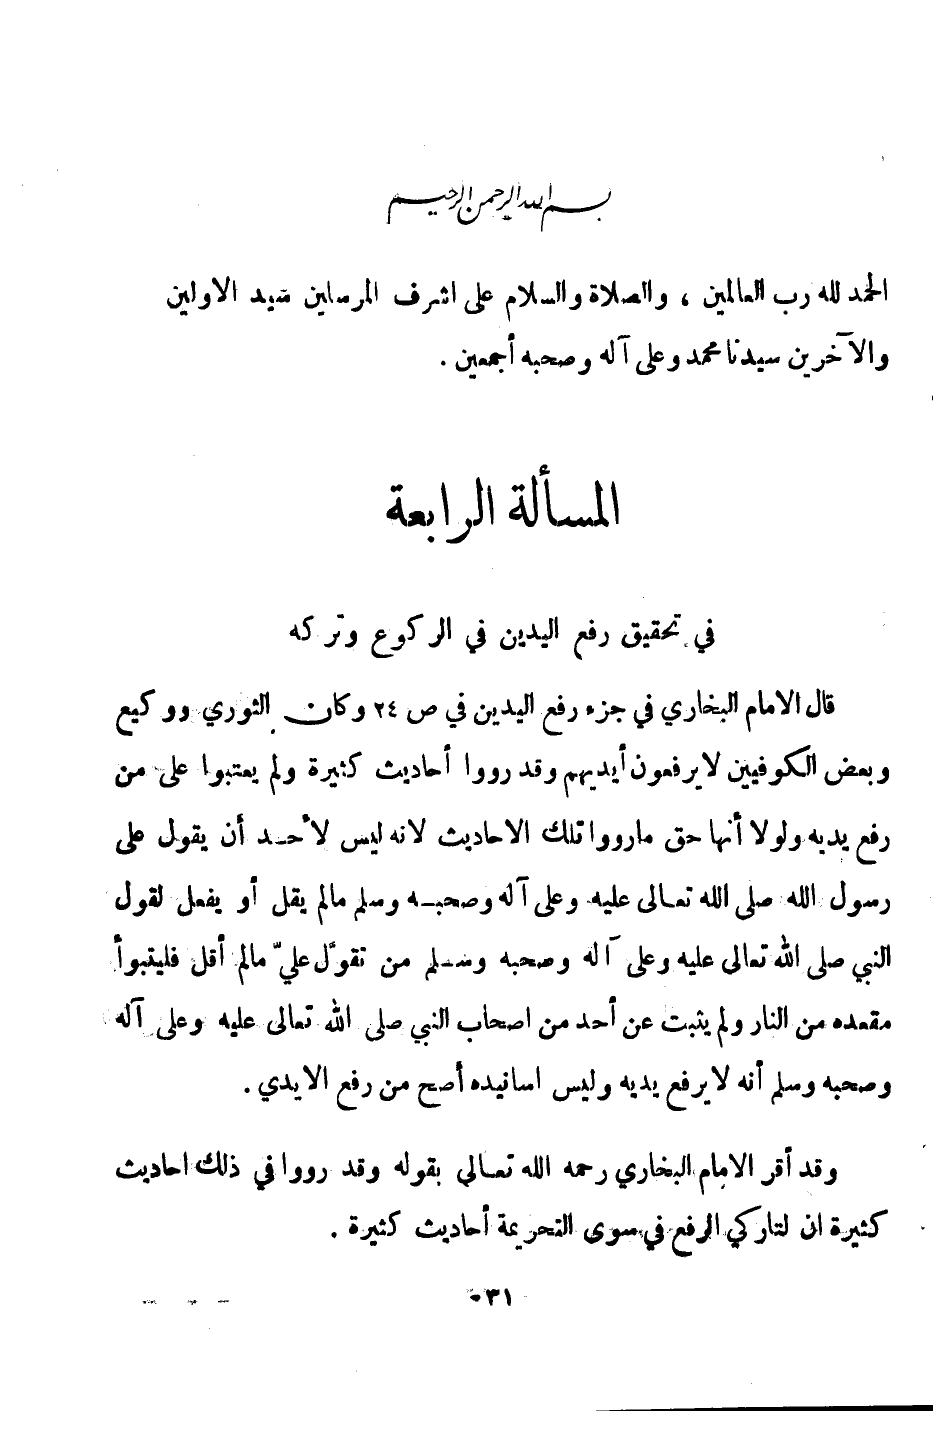 بسم الله الرحمن الرحيم
الحمد لله رب العالمين ، والصلاة والسلام على اشرف المرسلين سيد الاولين
والآخرين سيدنا محمد وعلى آله وصحبه أجمعين .
المسألة الرابعة
في تحقيق رفع اليدين في الركوع وتركه
قال الامام البخاري في جزء رفع اليدين في ص ٢٤ وكان الثوري ووكيع
وبعض الكوفيين لا يرفعون أيديهم وقد رووا أحاديث كثيرة ولم يعتبوا على من
رفع يديه ولولا أنها حق مارووا تلك الاحاديث لانه ليس لأحد أن يقول على
رسول الله صلى الله تعالى عليه وعلى آله وصحبه وسلم مالم يقل أو يفعل لقول
النبي صلى الله تعالى عليه وعلى آله وصحبه وسلم من تقوَّل عليّ مالم أقل فليتبوأ
مقعده من النار ولم يثبت عن أحد من اصحاب النبي صلى الله تعالى عليه وعلى آله
وصحبه وسلم أنه لا يرفع يديه وليس اسانيده أصح من رفع الايدي .
وقد أقر الامام البخاري رحمه الله تعالى بقوله وقد رووا في ذلك احاديث
كثيرة ان لتاركي الرفع في سوى التحريمة أحاديث كثيرة .